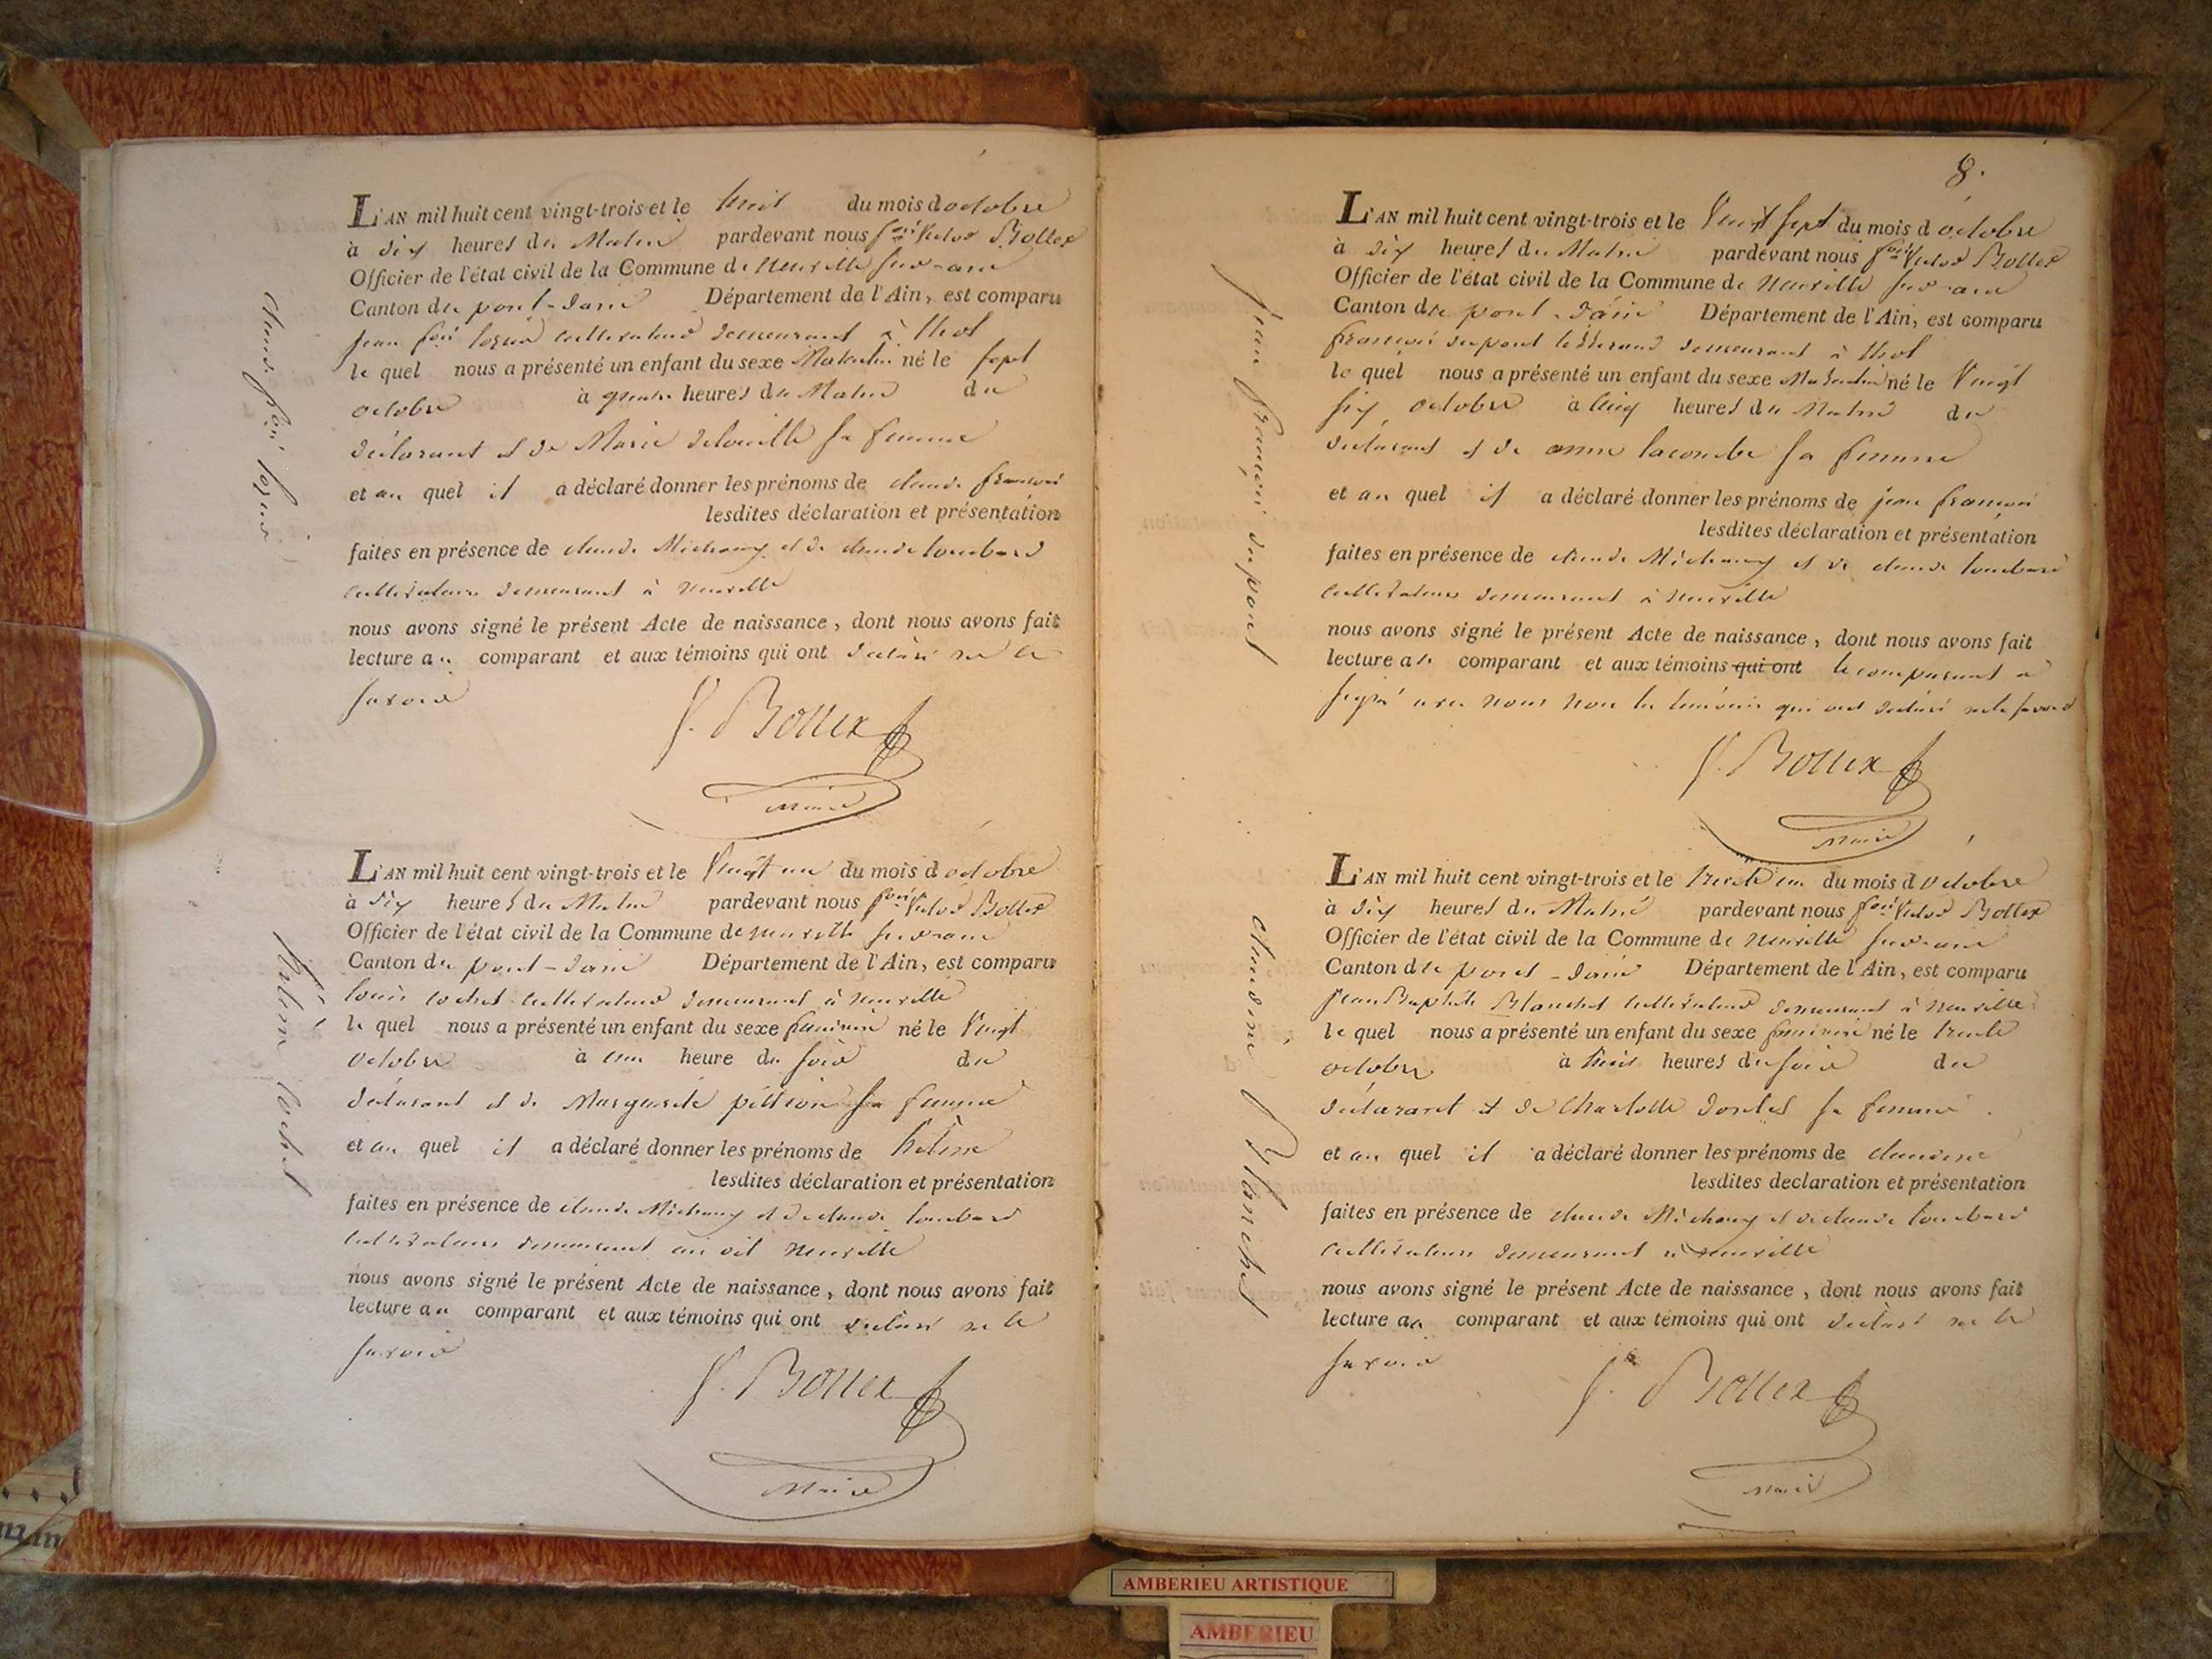 L'AN mil huit cent vingt-trois et le huit du mois d octobre
à dix heures du Matin pardevant nous f.ois Victor Bollex
Officier de l'état civil de la Commune de neuville sur-ain
Canton du pont-dain Département de l'Ain, est comparu
jean f.ois cultivateur demeurant à thol
le quel nous a présenté un enfant du sexe Masculin né le sept
octobre à quatre heures du Matin du
déclarant et de Marie sa femme
et au quel il a déclaré donner les prénoms de claude françois
lesdites déclaration et présentation
faites en présence de claude Michaux et de claude lombard
cultivateurs demeurant à neuville
nous avons signé le présent Acte de naissance, dont nous avons fait
lecture au comparant et aux témoins qui ont déclaré ne le
savoir
f. Bollex
Maire
claude f.ois
L'AN mil huit cent vingt-trois et le Vingt un du mois d octobre
à dix heures du Matin pardevant nous f.ois Victor Bollex
Officier de l'état civil de la Commune de neuville sur-ain
Canton du pont-dain Département de l'Ain, est comparu
louis cochet cultivateur demeurant à neuville
le quel nous a présenté un enfant du sexe féminin né le Vingt
octobre à une heure du soir du
déclarant et de Marguerite pittion sa femme
et au quel il a déclaré donner les prénoms de hélène
lesdites déclaration et présentation
faites en présence de claude Michaux et de claude lombard
cultivateurs demeurant neuville
nous avons signé le présent Acte de naissance, dont nous avons fait
lecture au comparant et aux témoins qui ont déclaré ne le
savoir
f. Bollex
Maire
hélène cochet
8.
L'AN mil huit cent vingt-trois et le Vingt sept du mois d octobre
à dix heures du Matin pardevant nous f.ois Victor Bollex
Officier de l'état civil de la Commune de neuville sur-ain
Canton du pont-dain Département de l'Ain, est comparu
françois dupont tisserand demeurant à thol
le quel nous a présenté un enfant du sexe Masculin né le Vingt
six octobre à cinq heures du Matin du
déclarant et de anne lacombe sa femme
et au quel il a déclaré donner les prénoms de jean françois
lesdites déclaration et présentation
faites en présence de claude Michaux et de claude lombard
cultivateurs demeurant à neuville
nous avons signé le présent Acte de naissance, dont nous avons fait
lecture au comparant et aux témoins qui ont le comparant a
signé avec nous non les témoins qui ont déclaré ne le savoir
f. Bollex
Maire
jean françois dupont
L'AN mil huit cent vingt-trois et le trente un du mois d octobre
à dix heures du Matin pardevant nous f.ois Victor Bollex
Officier de l'état civil de la Commune de neuville sur-ain
Canton du pont-dain Département de l'Ain, est comparu
jean Baptiste Blanchet cultivateur demeurant à neuville
le quel nous a présenté un enfant du sexe féminin né le trente
octobre à huit heures du soir du
déclarant et de Charlotte sa femme
et au quel il a déclaré donner les prénoms de claudine
lesdites declaration et présentation
faites en présence de claude Michaux et de claude lombard
cultivateurs demeurant à neuville
nous avons signé le présent Acte de naissance, dont nous avons fait
lecture au comparant et aux témoins qui ont déclaré ne le
savoir
f. Bollex
Maire
claudine Blanchet
AMBERIEU ARTISTIQUE
AMBERIEU